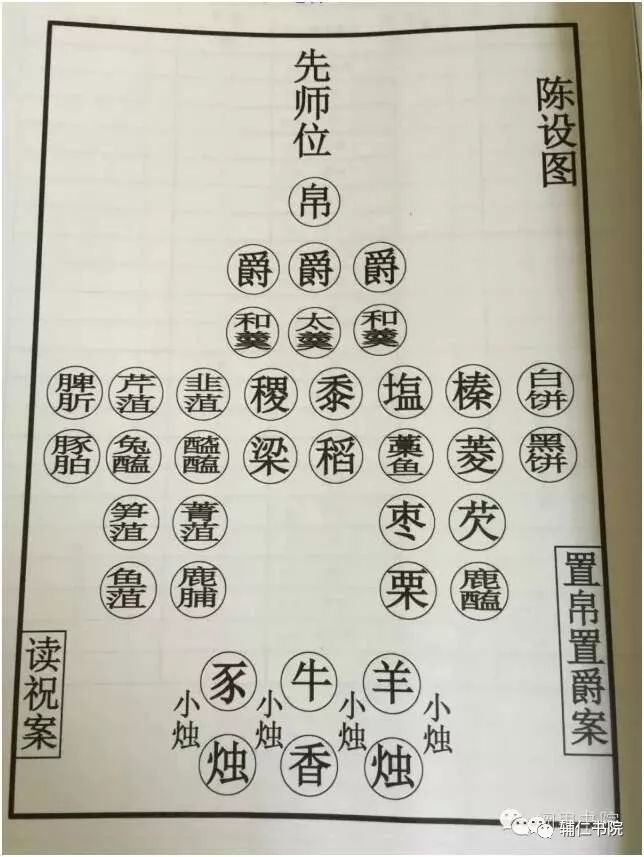 陈设图
先师位
帛
爵 爵 爵
和羹 太羹 和羹
脾肵 芹菹 韭菹 稷 黍 塩 榛 白饼
豚胉 兔醢 醓醢 梁 稻 藁鱼 菱 黑饼
笋菹 菁菹 枣 芡
鱼菹 鹿脯 栗 鹿醢
置帛置爵案
读祝案
豕 牛 羊
小烛 小烛 小烛 小烛
烛 香 烛
书院
辅仁书院